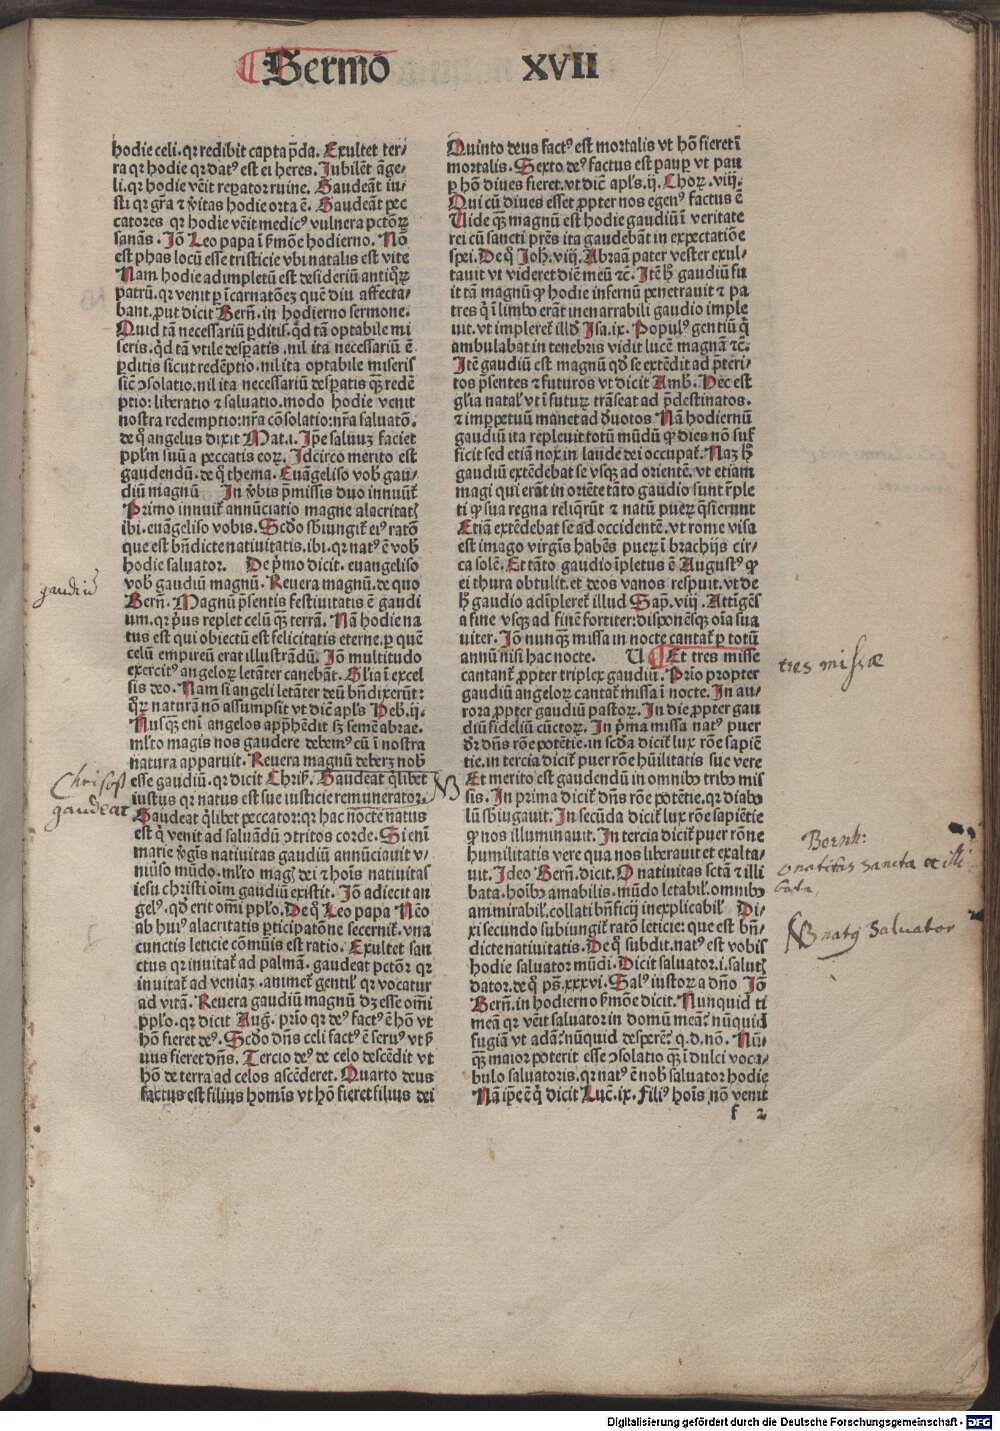 Sermo XVII
hodie celi. qr redibit capta p̄da. Exultet ter-
ra qr hodie qr datꝰ est ei heres. Iubilēt āge-
li. qr hodie vēit reꝑator ruine. Gaudeāt iu-
sti qr gr̄a ⁊ v̄itas hodie orta ē. Gaudeāt pec
catores qr hodie vēit medicꝰ vulnera pctōꝝ
sanās. Iō Leo papa ī ẜmōe hodierno. Nō
est phas locū esse tristicie vbi natalis est vite
Nam hodie adimpletū est desideriū antiq̊ꝝ
patrū. qr venit ꝑ īcarnatōeꝫ quē diu affecta-
bant. ꝓut dicit Bern̄. in hodierno sermone.
Quid tā necessariū ꝑditis. qd̄ tā optabile mi
seris. qd̄ tā vtile desꝑatis. nil ita necessariū ē
ꝑditis sicut redēptio. nil ita optabile miseris
sic̄ ↄsolatio. nil ita necessariū desꝑatis qꝫ̄ redē
ptio: liberatio ⁊ saluatio. modo hodie venit
nostra redemptio: nr̄a cōsolatio: nr̄a saluatō.
de q̊ angelus dixit Mat. i. Ip̄e saluuꝫ faciet
pplm̄ suū a peccatis eoꝝ. Idcirco merito est
gaudendū. de q̊ thema. Euāgeliso vob̄ gau-
diū magnū In v̄bis p̄missis duo innuūt᷑
Primo innuit᷑ annūciatio magne alacritatꝭ
ibi. euāgeliso vobis. Scd̄o sb̄iungit᷑ eiꝰ ratō
que est bn̄dicte natiuitatis. ibi. qr natꝰ ē vob̄
hodie saluator. De p̄mo dicit. euangeliso
vob̄ gaudiū magnū. Reuera magnū. de quo
Bern̄. Magnū p̄sentis festiuitatis ē gaudi
um. qr p̄us replet celū qꝫ̄ terrā. Nā hodie na
tus est qui obiectū est felicitatis eterne. ꝑ quē
celū empireū erat illustrādū. Iō multitudo
exercitꝰ angeloꝝ letāter canebāt. Gl̄ia ī excel
sis deo. Nam si angeli letāter deū bn̄dixerūt:
q̊ꝝ naturā nō assumpsit vt dic̄ apl̄s Heb̄. ij.
Nusqꝫ̄ eni angelos app̄hēdit sꝫ semē abrae.
ml̄to magis nos gaudere debemꝰ cū ī nostra
natura apparuit. Reuera magnū deberꝫ nob̄
esse gaudiū. qr dicit Chriß. Gaudeat q̄libet
iustus qr natus est sue iusticie remunerator.
Gaudeat q̄libet peccator: qr hac nocte natus
est q̄ venit ad saluādū ↄtritos corde. Si eni
marie v̄gīs natiuitas gaudiū annūciauit v-
niuso mūdo. ml̄to magꝭ dei ⁊ hoīs natiuitas
iesu christi oīm gaudiū existit. Iō adiecit an
gelꝰ. qd̄ erit om̄i pplo. De q̊ Leo papa Nēo
ab huiꝰ alacritatis ꝑticipatōne secernit᷑. vna
cunctis leticie cōmuīs est ratio. Exultet san
ctus qr inuitat᷑ ad palmā. gaudeat pctōr qr
inuitat᷑ ad veniaꝫ. animet᷑ gentil᷑ qr vocatur
ad vitā. Reuera gaudiū magnū dꝫ esse om̄i
pplo. qr dicit Aug̅. prīo qr deꝰ factꝰ ē hō vt
hō fieret deꝰ. Scd̄o dn̄s celi factꝰ ē seruꝰ vt ẜ
uus fieret dn̄s. Tercio deꝰ de celo descēdit vt
hō de terra ad celos ascēderet. Quarto deus
factus est filius homīs vt hō fieret filius dei
Quinto deus factꝰ est mortalis vt hō fieret ī
mortalis. Sexto deꝰ factus est pauꝑ vt pau
ꝑ hō diues fieret. vt dic̄ apl̄s. ij. Chor. viij.
Qui cū diues esset ꝓpter nos egenꝰ factus ē
Vide qꝫ̄ magnū est hodie gaudiū ī veritate
rei cū sancti pr̄es ita gaudebāt in expectatiōe
xp̄i. De q̊ Ioh. viij. Abraā pater vester exul-
tauit vt videret diē meū ⁊c̄. Itē h̊ gaudiū fu
it tā magnū ꝙ hodie infernū penetrauit ⁊ pa
tres q̄ ī limbo erāt inenarrabili gaudio imple
uit. vt impleret᷑ illd̄ Isa. ix. Populꝰ gentiū q̄
ambulabat in tenebris vidit lucē magnā ⁊c̄.
Itē gaudiū est magnū qd̄ se extēdit ad p̄teri-
tos p̄sentes ⁊ futuros vt dicit Amb̄. Nec est
gl̄ia natal᷑ vt ī futurꝝ trāseat ad p̄destinatos.
⁊ imꝑpetuū manet ad d̄uotos Nā hodiernū
gaudiū ita repleuit totū mūdū ꝙ dies nō suf
ficit sed etiā nox in laude dei occupat᷑. Naꝫ h̊
gaudiū extēdebat se vsqꝫ ad orientē. vt etiam
magi qui erāt in oriēte tāto gaudio sunt r̄ple
ti ꝙ sua regna reliq̄rūt ⁊ natū puerꝝ q̄sierunt
Etiā extēdebat se ad occidentē. vt rome visa
est imago virgīs habēs puerꝝ ī brachijs cir-
ca solē. Et tāto gaudio īpletus ē Augustꝰ ꝙ
ei thura obtulit. et deos vanos respuit. vt de
h̊ gaudio adīpleret᷑ illud Sap̄. viij. Attigēs
a fine vsqꝫ ad finē fortiter: disponēsqꝫ oīa sua
uiter. Iō nunqꝫ̄ missa in nocte cantat᷑ ꝑ totū
annū nisi hac nocte. V Et tres misse
cantant᷑ ꝓpter triplex gaudiū. Prīo propter
gaudiū angeloꝝ cantat᷑ missa ī nocte. In au-
rora ꝓpter gaudiū pastoꝝ. In die ꝓpter gau
diū fideliū cūctoꝝ. In p̄ma missa natꝰ puer
dr̄ dn̄s rōe potētie. in scd̄a dicit᷑ lux rōe sapiē
tie. in tercia dicit᷑ puer rōe hūilitatis sue vere
Et merito est gaudendū in omnibꝰ tribꝰ mis
sis. In prima dicit᷑ dn̄s rōe potētie. qr diabo
lū sb̄iugauit. In secūda dicit᷑ lux rōe sapiētie
ꝙ nos illuminauit. In tercia dicit᷑ puer rōne
humilitatis vere qua nos liberauit et exalta-
uit. Ideo Bern̄. dicit. O natiuitas sctā ⁊ illi
bata. hoībꝰ amabilis. mūdo letabil᷑. omnibꝰ
ammirabil᷑. collati bn̄ficij inexplicabil᷑ Di-
xi secundo subiungit᷑ ratō leticie: que est bn̄-
dicte natiuitatis. De q̊ subdit. natꝰ est vobis
hodie saluator mūdi. Dicit saluator. i. salutꝭ
dator. de q̊ pꝭ. xxxvi. Salꝰ iustoꝝ a dn̄o Iō
Bern̄. in hodierno ẜmōe dicit. Nunquid ti
meā qr vēit saluator in domū meā: nūquid
fugiā vt adā: nūquid desperē: q. d. nō. Nū-
qꝫ̄ maior poterit esse ↄsolatio qꝫ̄ ī dulci voca-
bulo saluatoris. qr natꝰ ē nob̄ saluator hodie
Nā ip̄e ē q̄ dicit Luc̄. ix. Filiꝰ hoīs nō venit
f 2
gaudiū
Chrisost
gaudeat
NB
tres missæ
Bernh:
o natiuitas sancta et illi
bata,
NB natꝰ Saluator
Digitalisierung gefördert durch die Deutsche Forschungsgemeinschaft - DFG